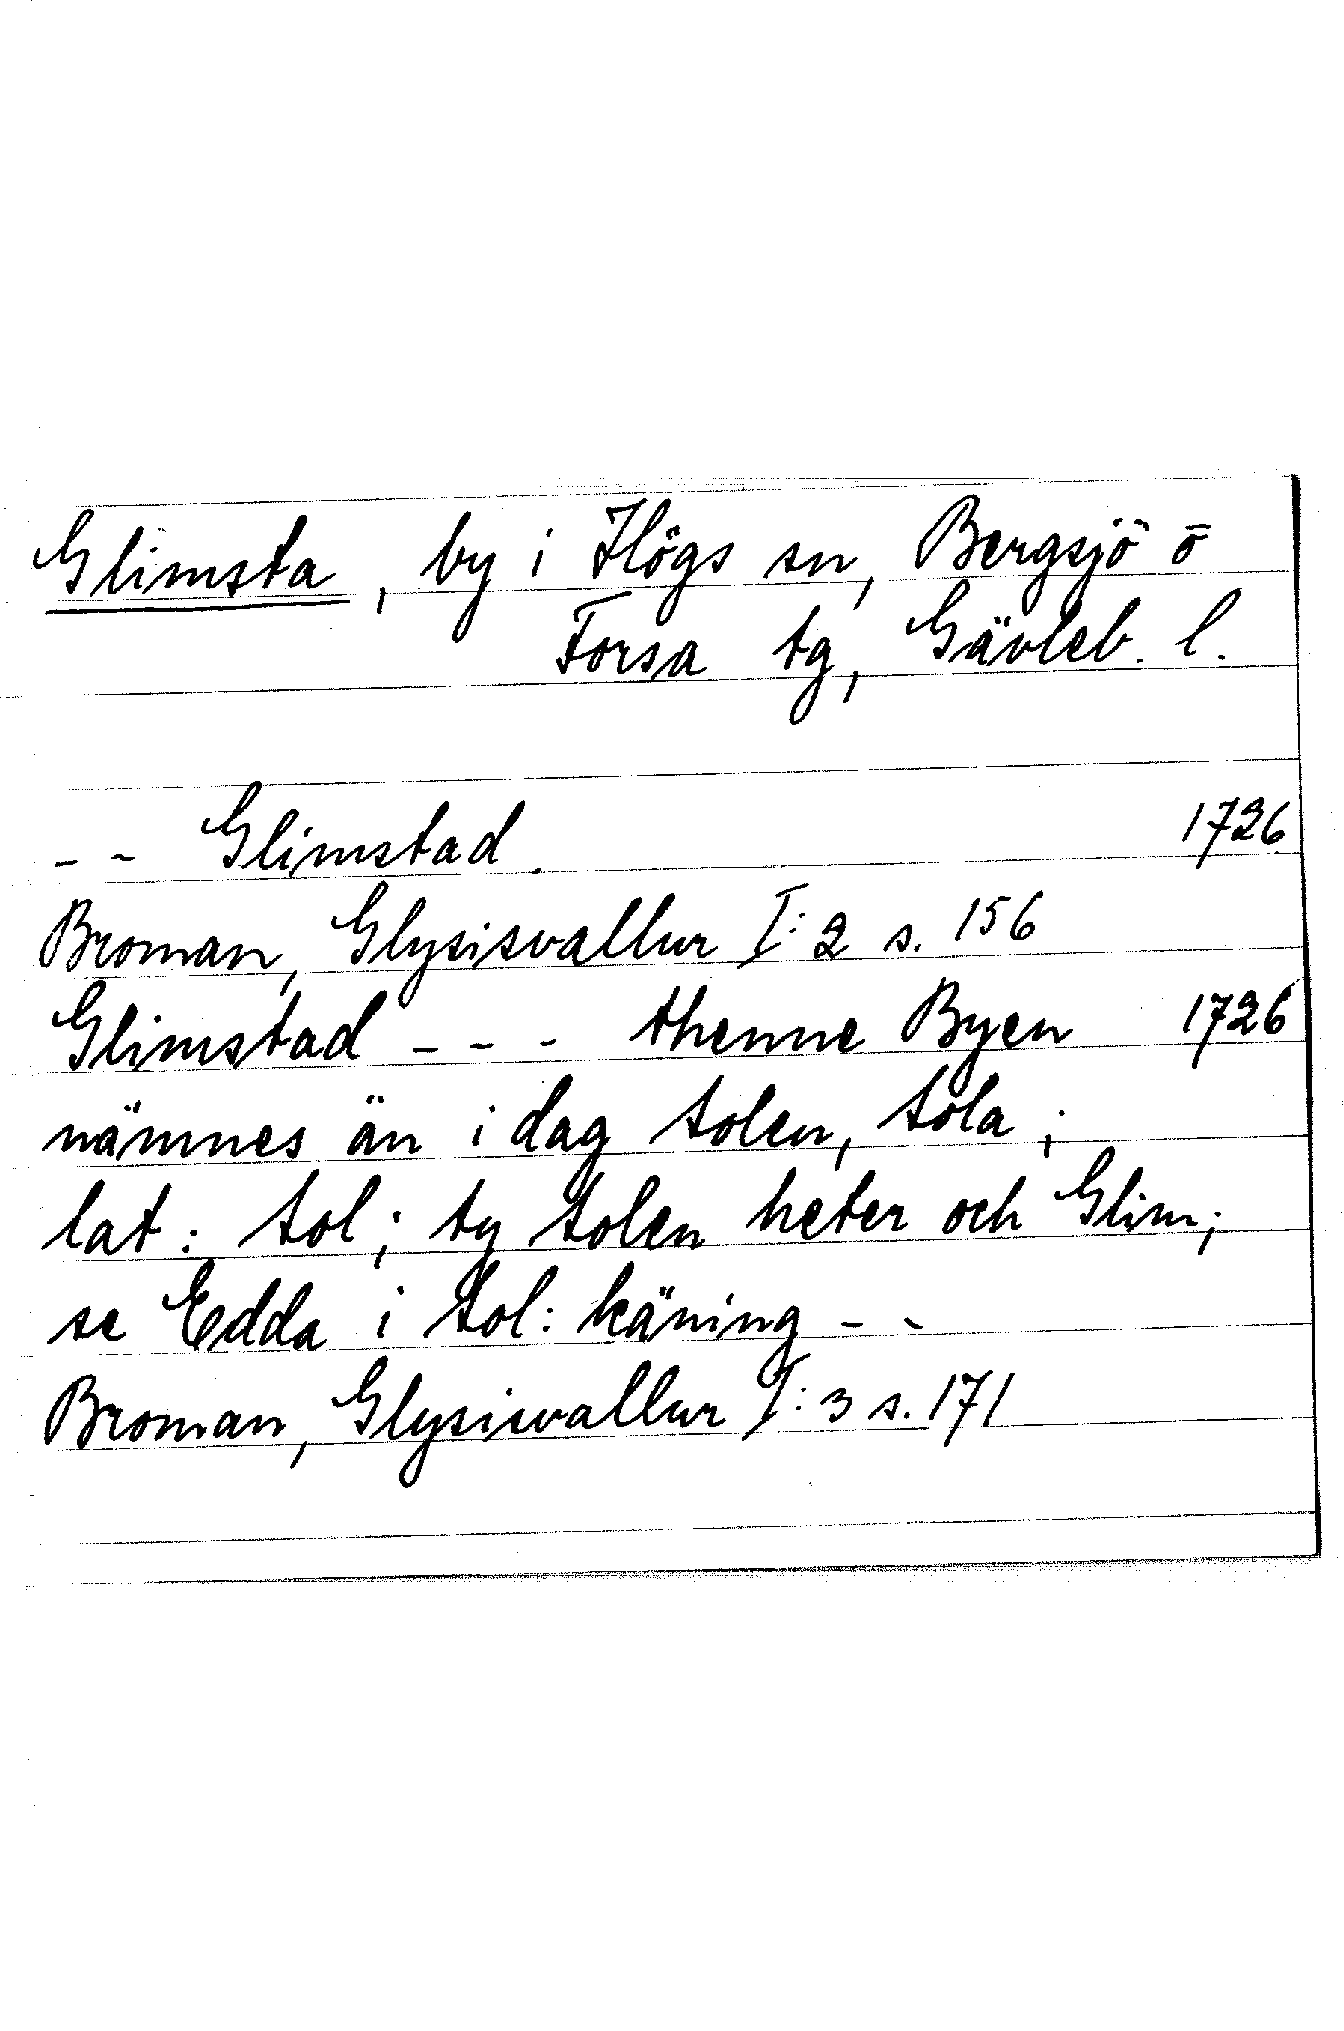 Glimsta, by i Högs sn, Bergsjö o
Forsa tg, Gävleb. l.
-- Glimstad. 1726
Broman, Glysisvallur I:2 s. 156
Glimstad --- thenne Byen 1726
nämnes än i dag Solen, Sola;
lat: Sol; ty Solen heter och Glim;
se Edda i Sol: käning --
Broman, Glysisvallur I:3 s. 171